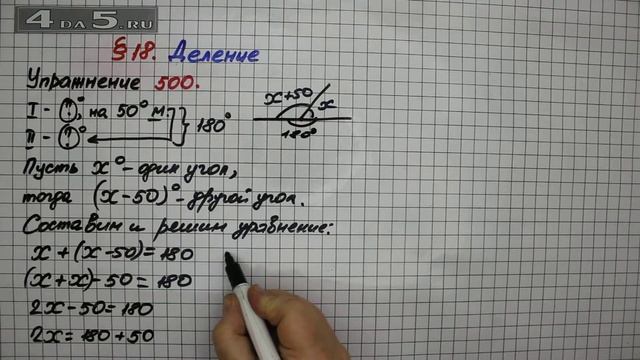 4DA5.RU
§18. Деление
Упражнение 500.
I - (?)°, на 50° м
II - (?)°
} 180°
x+50
x
180°
Пусть x° - один угол,
тогда (x-50)° - другой угол.
Составим и решим уравнение:
x + (x-50) = 180
(x+x)-50 = 180
2x-50=180
2x=180+50